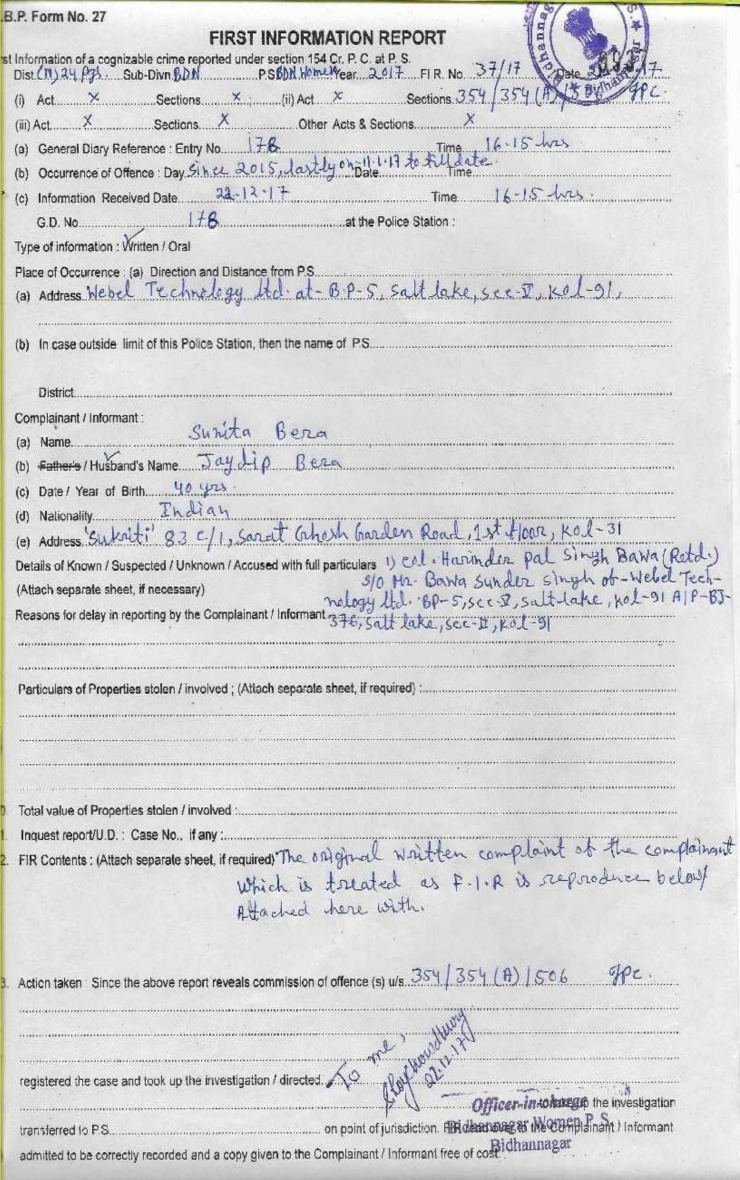 .B.P. Form No. 27
FIRST INFORMATION REPORT
st Information of a cognizable crime reported under section 154 Cr. P. C. at P. S.
Dist (N) 24 Pgs. Sub-Divn. BDN P.S. BDN Women Year 2017 F I R. No. 37/17 Date
(i) Act X Sections X (ii) Act X Sections 354/354(A)/506 IPC.
(iii) Act X Sections X Other Acts & Sections X
(a) General Diary Reference : Entry No. 178 Time 16-15 hrs
(b) Occurrence of Offence : Day Since 2015, lastly on 11-1-17 to till date. Date Time
(c) Information Received Date 22-12-17 Time 16-15 hrs.
G.D. No. 178 at the Police Station :
Type of information : Written / Oral
Place of Occurrence : (a) Direction and Distance from P.S.
(a) Address Webel Technology Ltd. at- B.P-5, Salt lake, sec-V, Kol-91,
(b) In case outside limit of this Police Station, then the name of P.S.
District
Complainant / Informant :
(a) Name Sunita Bera
(b) Father's / Husband's Name Jaydip Bera
(c) Date / Year of Birth 40 yrs.
(d) Nationality Indian
(e) Address 'Sukriti' 83 C/1, Sarat Ghosh Garden Road, 1st floor, Kol-31
Details of Known / Suspected / Unknown / Accused with full particulars 1) Col. Harinder Pal Singh Bawa (Retd.)
(Attach separate sheet, if necessary) S/O Mr. Bawa Sunder Singh of- Webel Tech-
nology Ltd. BP-5, sec-V, salt-lake, Kol-91 A/P-BJ-
Reasons for delay in reporting by the Complainant / Informant 376, Salt lake, sec-II, Kol-91
Particulars of Properties stolen / involved ; (Attach separate sheet, if required) :
0. Total value of Properties stolen / involved :
1. Inquest report/U.D. : Case No., if any :
2. FIR Contents : (Attach separate sheet, if required) The original written complaint of the complainant
Which is treated as F.I.R is reproduce below/
Attached here with.
3. Action taken : Since the above report reveals commission of offence (s) u/s. 354/354(A)/506 IPC.
registered the case and took up the investigation / directed To me,
22.12.17
Officer-in-charge to take up the investigation
transferred to P.S. on point of jurisdiction. FIR read over to the Complainant / Informant
Bidhannagar Women P.S.
Bidhannagar
admitted to be correctly recorded and a copy given to the Complainant / Informant free of cost.